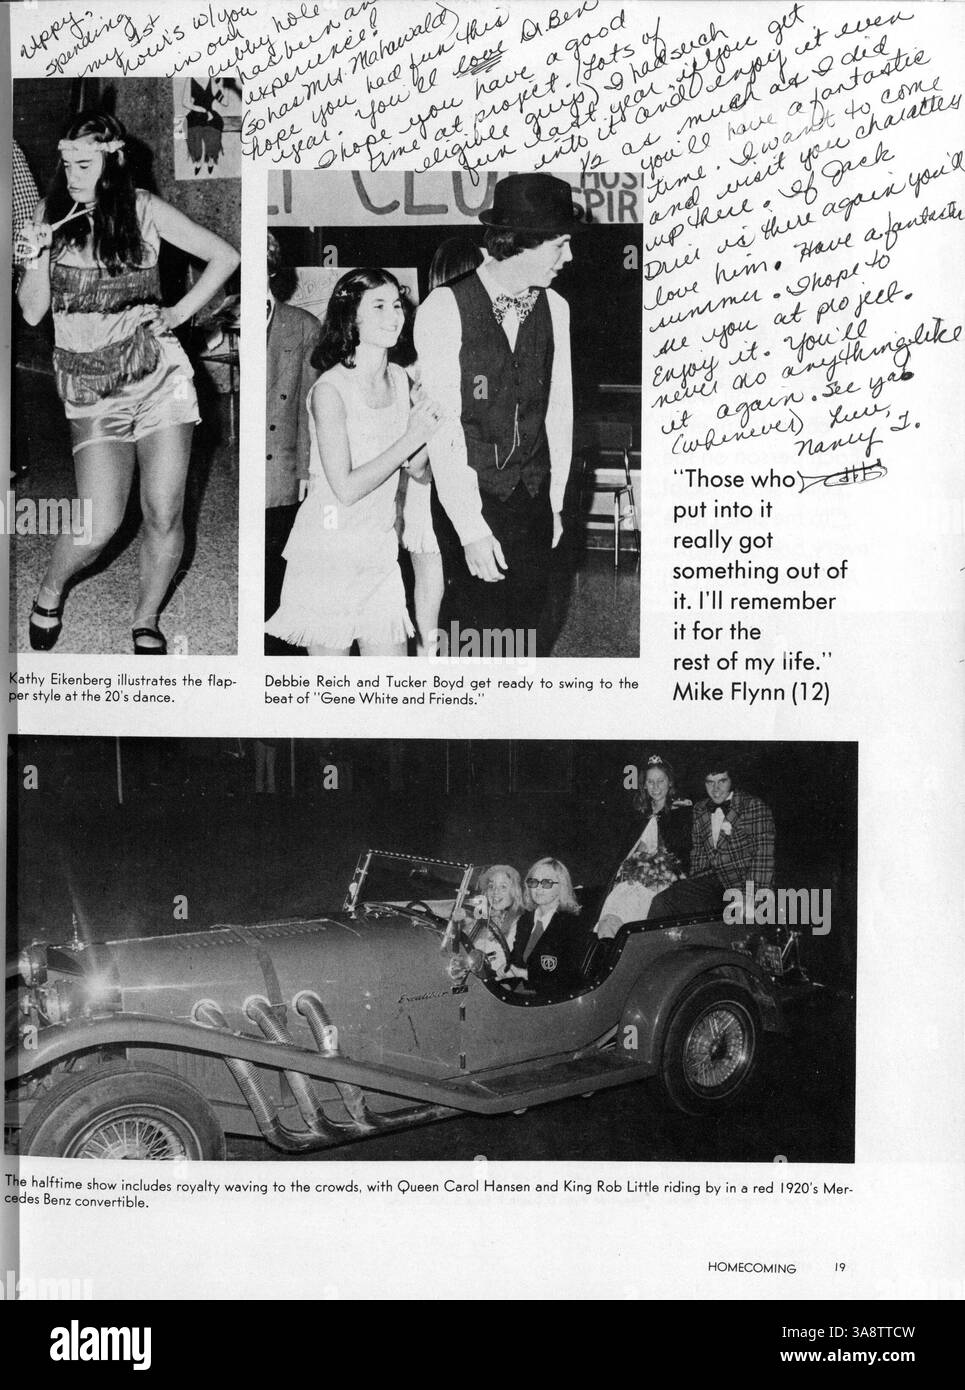 uppy.
spending
my 1st
hour's w/you
in our
cubby hole
has been an
experience!
(so has Mrs. Mahawald)
hope you had fun this
year. You'll love Dr. Ben
I hope you have a good
time at project. (Lots of
eligible guys) I had such
fun last year. If you get
into it and enjoy it even
1/2 as much as I did
you'll have a fantastic
time. I want to come
and visit you characters
up there. If Jack
Drici is there again you'll
love him. Have a fantastic
summer. I hope to
see you at project.
Enjoy it. You'll
never do anything like
it again. See ya
(whenever) Luv,
Nancy T.
CLU
HUS
SPIR
"Those who
put into it
really got
something out of
it. I'll remember
it for the
rest of my life."
Mike Flynn (12)
Kathy Eikenberg illustrates the flap-
per style at the 20's dance.
Debbie Reich and Tucker Boyd get ready to swing to the
beat of "Gene White and Friends."
Excalibur
The halftime show includes royalty waving to the crowds, with Queen Carol Hansen and King Rob Little riding by in a red 1920's Mer-
cedes Benz convertible.
HOMECOMING 19
alamy
Image ID: 3A8TTCW
www.alamy.com